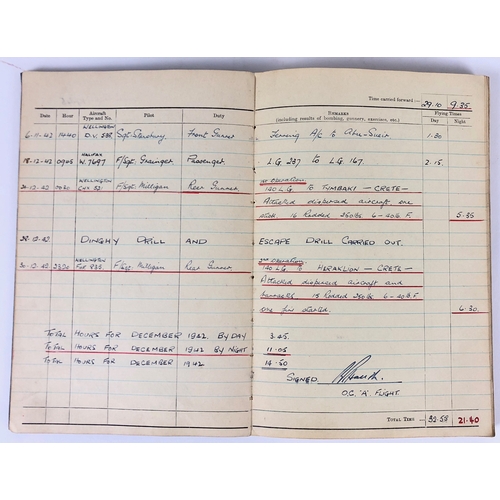 Time carried forward :— 29.10 9.35
Date Hour Aircraft Type and No. Pilot Duty Remarks (including results of bombing, gunnery, exercises, etc.) Flying Times Day Night
6-12-42 1440 WELLINGTON D.V. Sgt. Front Gunner Ferrying A/c to Abu-Sueir 1.30
18-12-42 0905 HALIFAX W.7697 F/Sgt. Grainger Passenger. L.G. 237 to L.G 167. 2.15
WELLINGTON 1st Operation
20-12-42 F/Sgt. Milligan Rear Gunner. 140 L.G to TYMBAKI — CRETE —
Attacked dispersed aircraft one
16 Rodded 250lbs 6-40lb. F. 5.35
28-12-42 DINGHY DRILL AND ESCAPE DRILL CARRIED OUT.
WELLINGTON 2nd Operation
30-12-42 2320 F/Sgt. Milligan Rear Gunner. 140 LG to HERAKLION — CRETE —
Attacked dispersed aircraft and
barracks 15 Rodded 250lbs 6-40lb.F
one fire started. 6.30
TOTAL HOURS FOR DECEMBER 1942 BY DAY 3.45
TOTAL HOURS FOR DECEMBER 1942 BY NIGHT 11.05
TOTAL HOURS FOR DECEMBER 1942 14.50
SIGNED
O.C. 'A' FLIGHT
Total Time :— 21.40